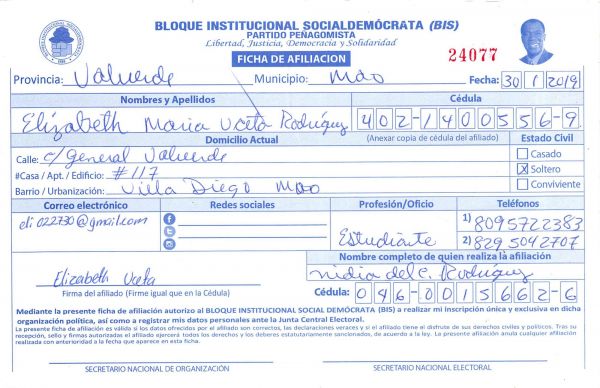 BLOQUE INSTITUCIONAL SOCIALDEMÓCRATA (BIS)
PARTIDO PEÑAGOMISTA
Libertad, Justicia, Democracia y Solidaridad
FICHA DE AFILIACION
24077
Provincia: Valverde Municipio: Mao Fecha: 30 1 2019
Nombres y Apellidos Cédula
Elizabeth Maria Uceta Rodriguez 402-1400556-9
Domicilio Actual (Anexar copia de cédula del afiliado) Estado Civil
Calle: c/ General Valverde Casado
#Casa / Apt. / Edificio: #117 X Soltero
Barrio / Urbanización: Villa Diego Mao Conviviente
Correo electrónico Redes sociales Profesión/Oficio Teléfonos
eli022730@gmail.com Estudiante 1) 8095722383
2) 8295042707
Nombre completo de quien realiza la afiliación
Elizabeth Uceta nidia del c. Rodriguez
Firma del afiliado (Firme igual que en la Cédula) Cédula: 046-0015662-6
Mediante la presente ficha de afiliación autorizo al BLOQUE INSTITUCIONAL SOCIAL DEMÓCRATA (BIS) a realizar mi inscripción única y exclusiva en dicha
organización política, así como a registrar mis datos personales ante la Junta Central Electoral.
La presente ficha de afiliación es válida si los datos ofrecidos por el afiliado son correctos, las declaraciones veraces y si el afiliado tiene el disfrute de sus derechos civiles y políticos. Tras su
recepción, sello y firmas autorizadas el afiliado ejercerá todos los derechos y los deberes estatutariamente sancionados, de acuerdo a la ley. La presente afiliación anula cualquier afiliación
realizada con anterioridad a la fecha que aparece en esta ficha.
SECRETARIO NACIONAL DE ORGANIZACIÓN SECRETARIO NACIONAL ELECTORAL